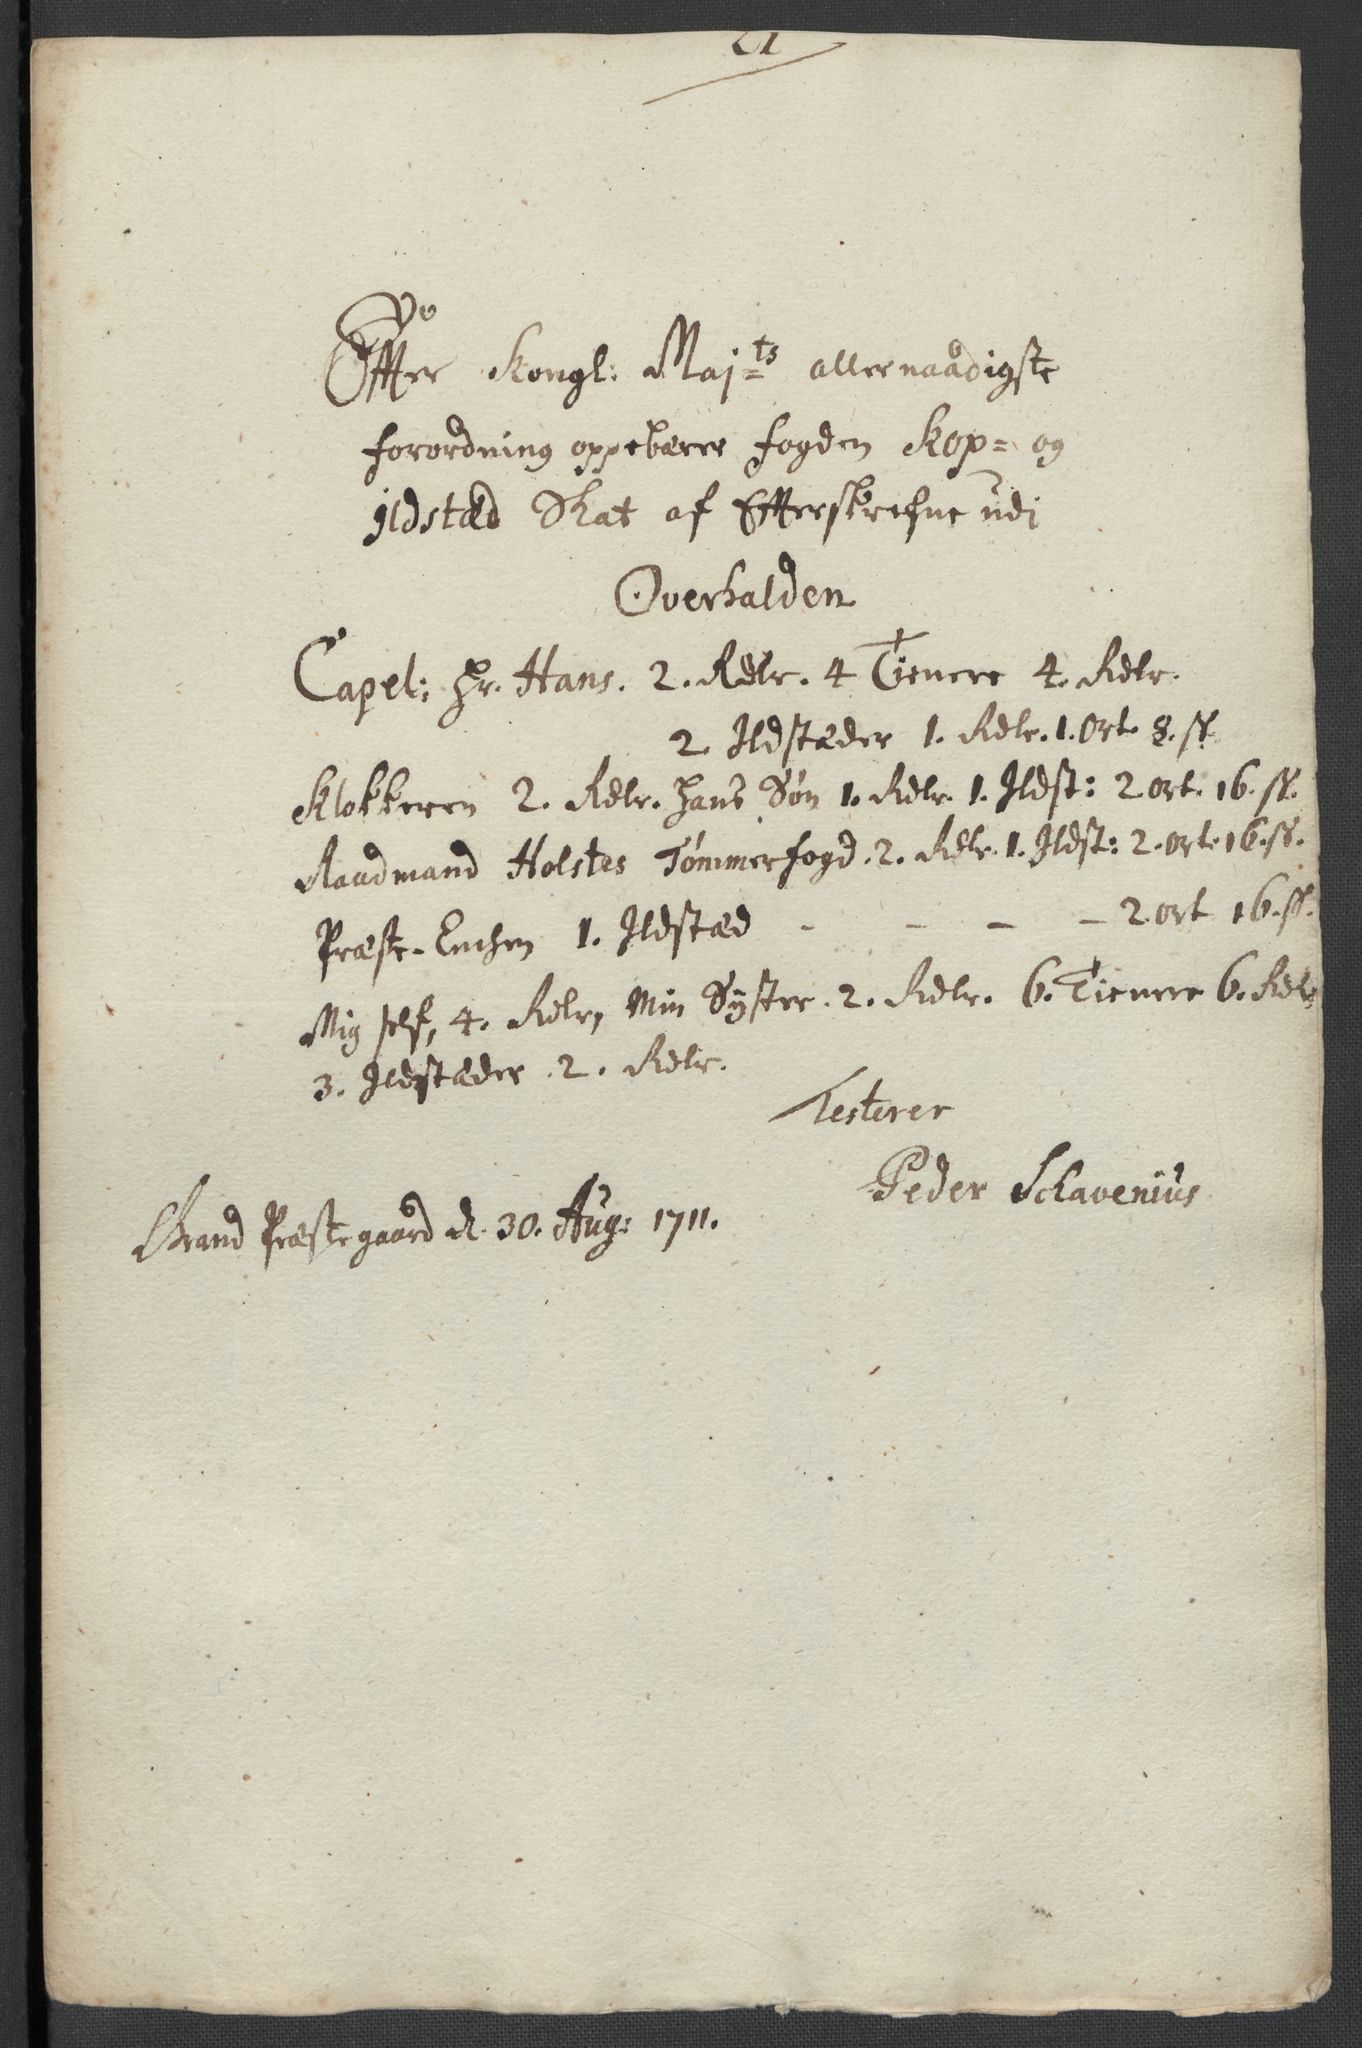 21
Effter Kongl: Maj:ts allernaadigste
forordning oppebærer fogden Kop= og
Ildstæd Skat af Effterskrefne udi
Overhalden
Capel: Hr. Hans. 2. Rdlr. 4 Tienere 4. Rdlr.
2 Ildstæder 1. Rdlr. 1. Ort. 8. sk
Klokkeren 2. Rdlr. Hans Søn 1. Rdlr. 1. Ildst: 2 ort. 16. sk.
Raadmand Holstes Tømmerfogd. 2. Rdlr. 1. Ildst: 2. ort. 16. sk.
Præste-Enchen 1. Ildstæd - - - - 2 ort 16. sk.
Mig self, 4. Rdlr, Min Syster. 2. Rdlr. 6. Tienere 6. Rdlr
3. Ildstæder. 2. Rdlr.
Testerer
Peder Schavenius
Præstegaard d. 30. Aug: 1711.